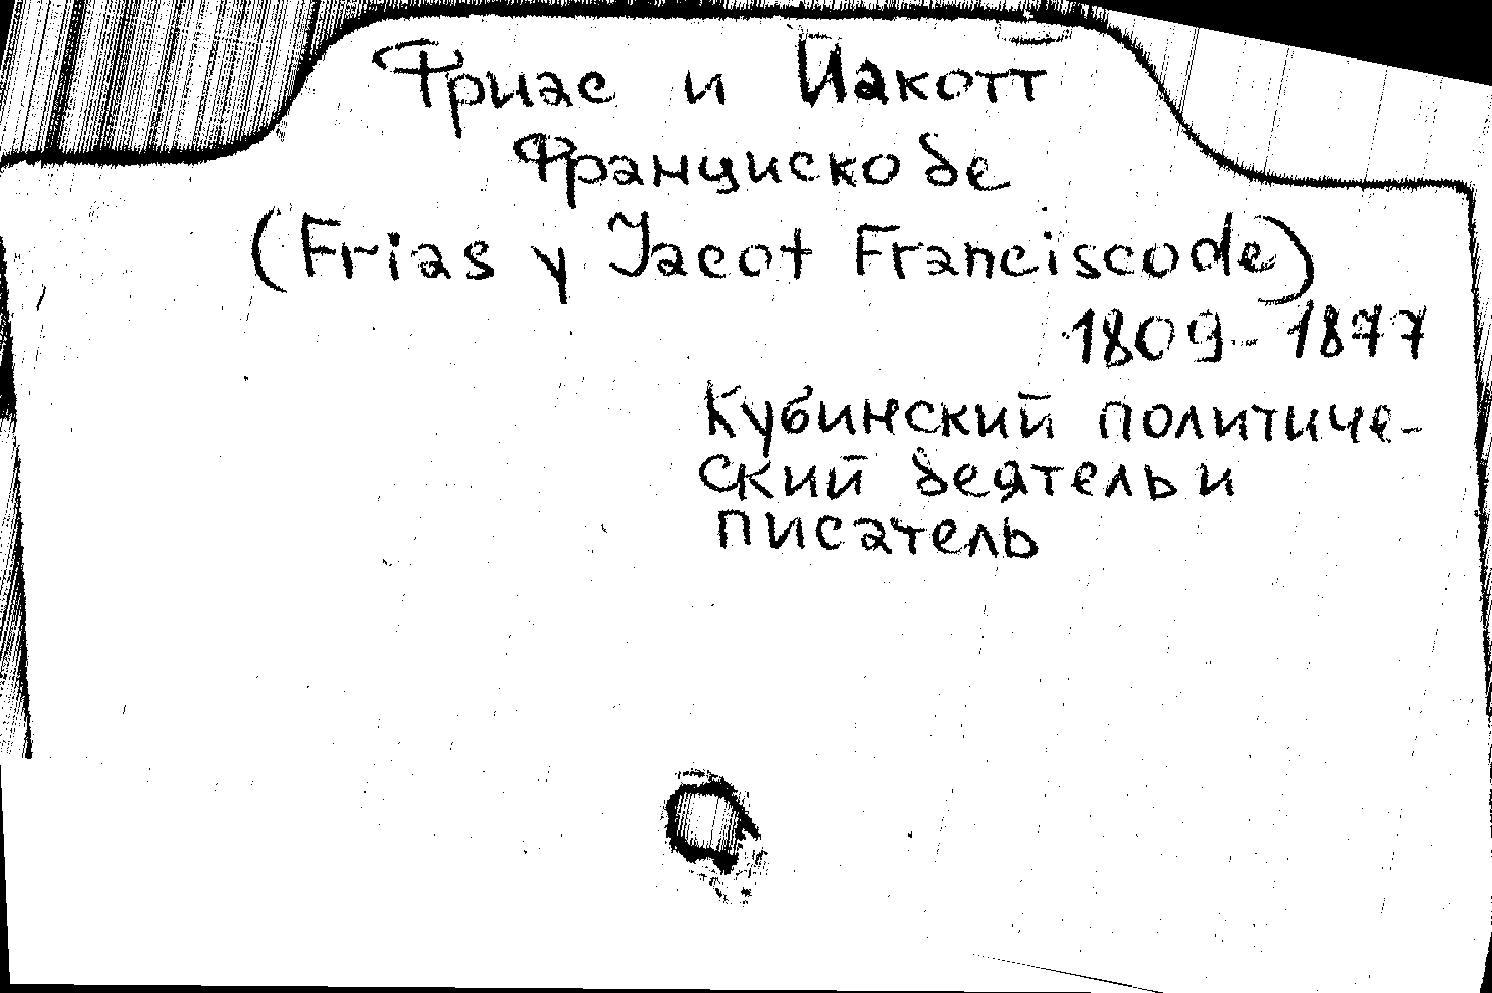 Фриас и Йакотт
Франциско де
(Frias y Jacot Francisco de)
1809-1877
Кубинский политиче-
ский деятель и
писатель